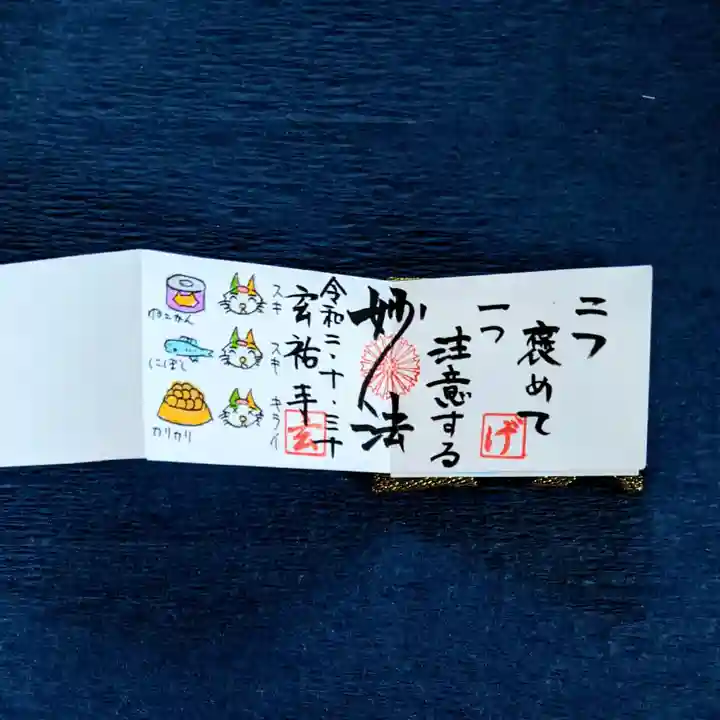 二つ
褒めて
一つ
注意する
げ
妙法
令和二・十・三十
玄祐寺
玄
スキ
スキ
キライ
ねこかん
にぼし
カリカリ